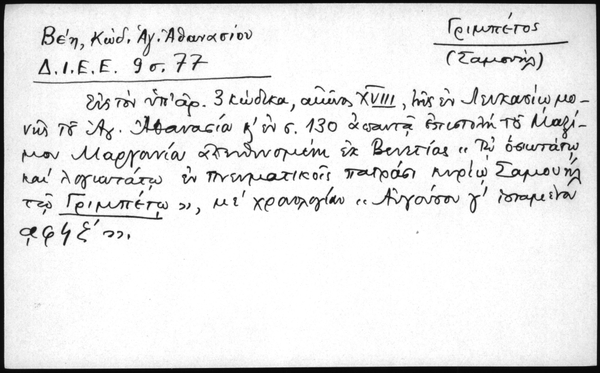 Γριμπέτος
(Σαμουήλ)
Βέη, Κώδ. Ἁγ. Ἀθανασίου
Δ.Ι.Ε.Ε. 9 σ. 77
Εἰς τὸν ὑπ' ἀρ. 3 κώδικα, αἰῶνος XVIII, τῆς ἐν Λευκασίῳ μο-
νῆς τοῦ Ἁγ. Ἀθανασία κ' ἐν σ. 130 ἀπαντᾷ ἐπιστολὴ τοῦ Μαξί-
μου Μαργουνία ἀπευθυνομένη ἐκ Βενετίας "Τῷ ὁσιωτάτῳ
καὶ λογιωτάτῳ ἐν πνευματικοῖς πατράσι κυρίῳ Σαμουὴλ
τῷ Γριμπέτῳ», μὲ χρονολογίαν "Αὐγούστου γ' ἱσταμένου
͵αφϟξ'».